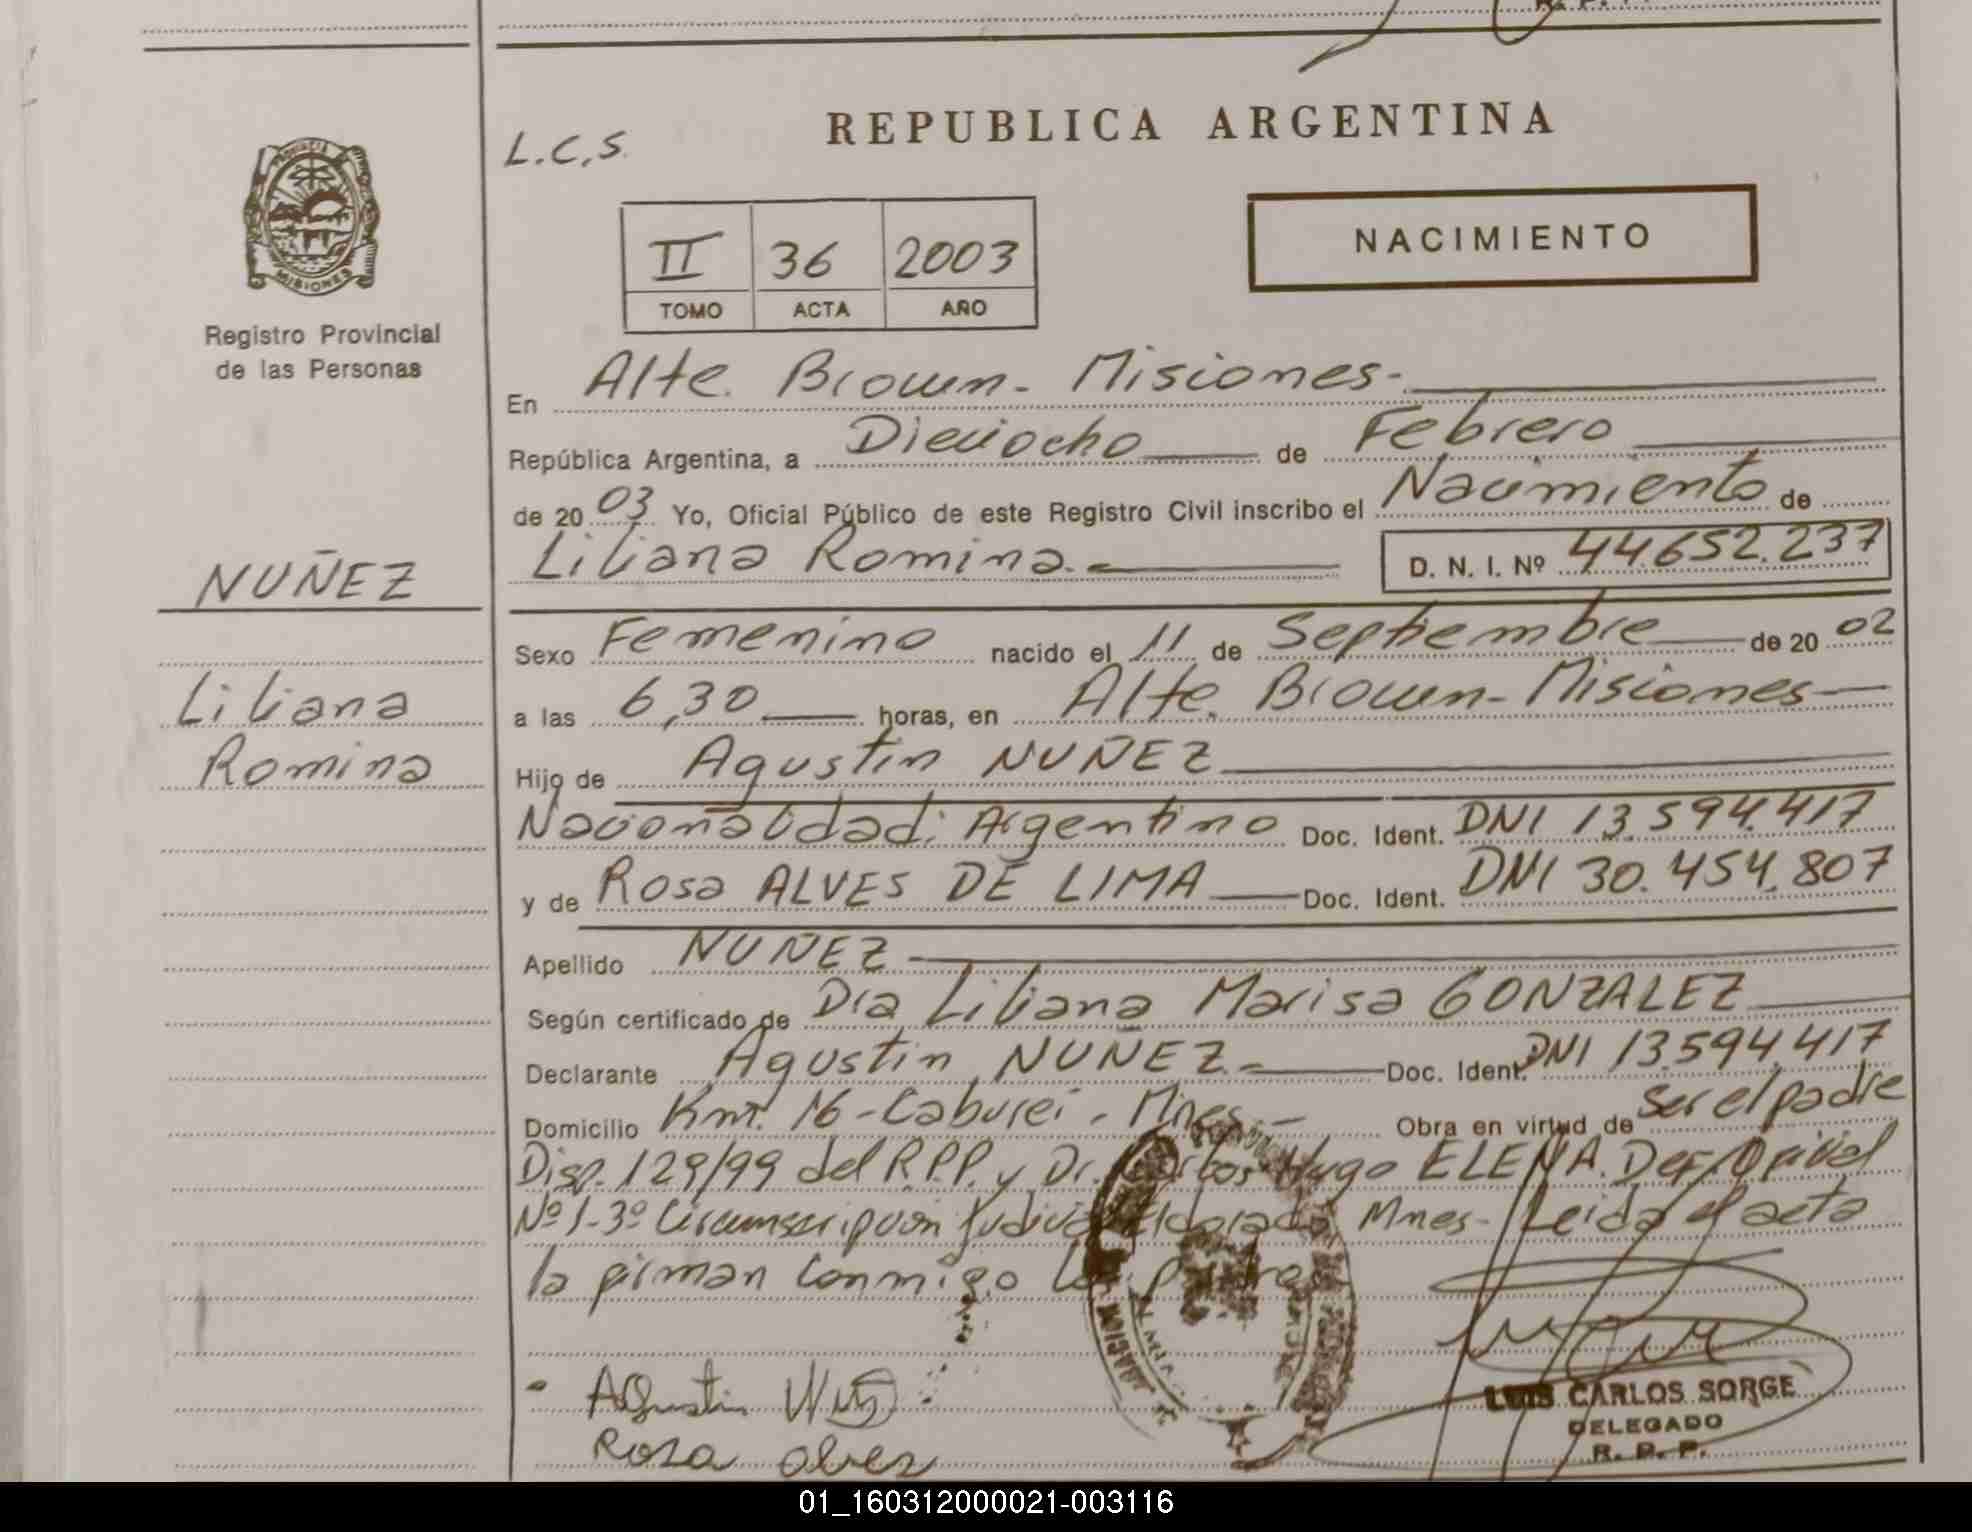 R. P. P.
REPUBLICA ARGENTINA
L.C.S.
PROVINCIA DE
MISIONES
Registro Provincial
de las Personas
II 36 2003
TOMO ACTA AÑO
NACIMIENTO
En Alte. Brown - Misiones -
República Argentina, a Dieciocho de Febrero
de 2003 Yo, Oficial Público de este Registro Civil inscribo el Nacimiento de
Liliana Romina. D. N. I. Nº 44.652.237
NUÑEZ
Liliana
Romina
Sexo Femenino nacido el 11 de Septiembre de 2002
a las 6,30 horas, en Alte. Brown - Misiones
Hijo de Agustin NUÑEZ
Nacionalidad: Argentino Doc. Ident. DNI 13.594.417
y de Rosa ALVES DE LIMA Doc. Ident. DNI 30.454.807
Apellido NUÑEZ
Según certificado de Dra Liliana Marisa GONZALEZ
Declarante Agustin NUÑEZ.- Doc. Ident. DNI 13.594.417
Domicilio Km. 16 - Cabureí - Mnes - Obra en virtud de ser el padre
Disp. 129/99 del R.P.P. y Dr. Carlos Hugo ELENA. Def. Oficial
Nº 1 - 3º Circunscripcion Judicial Eldorado Mnes - Leida el acta
la firman conmigo los padres
Agustin
Rosa alves
LUIS CARLOS SORGE
DELEGADO
R. P. P.
01_160312000021-003116